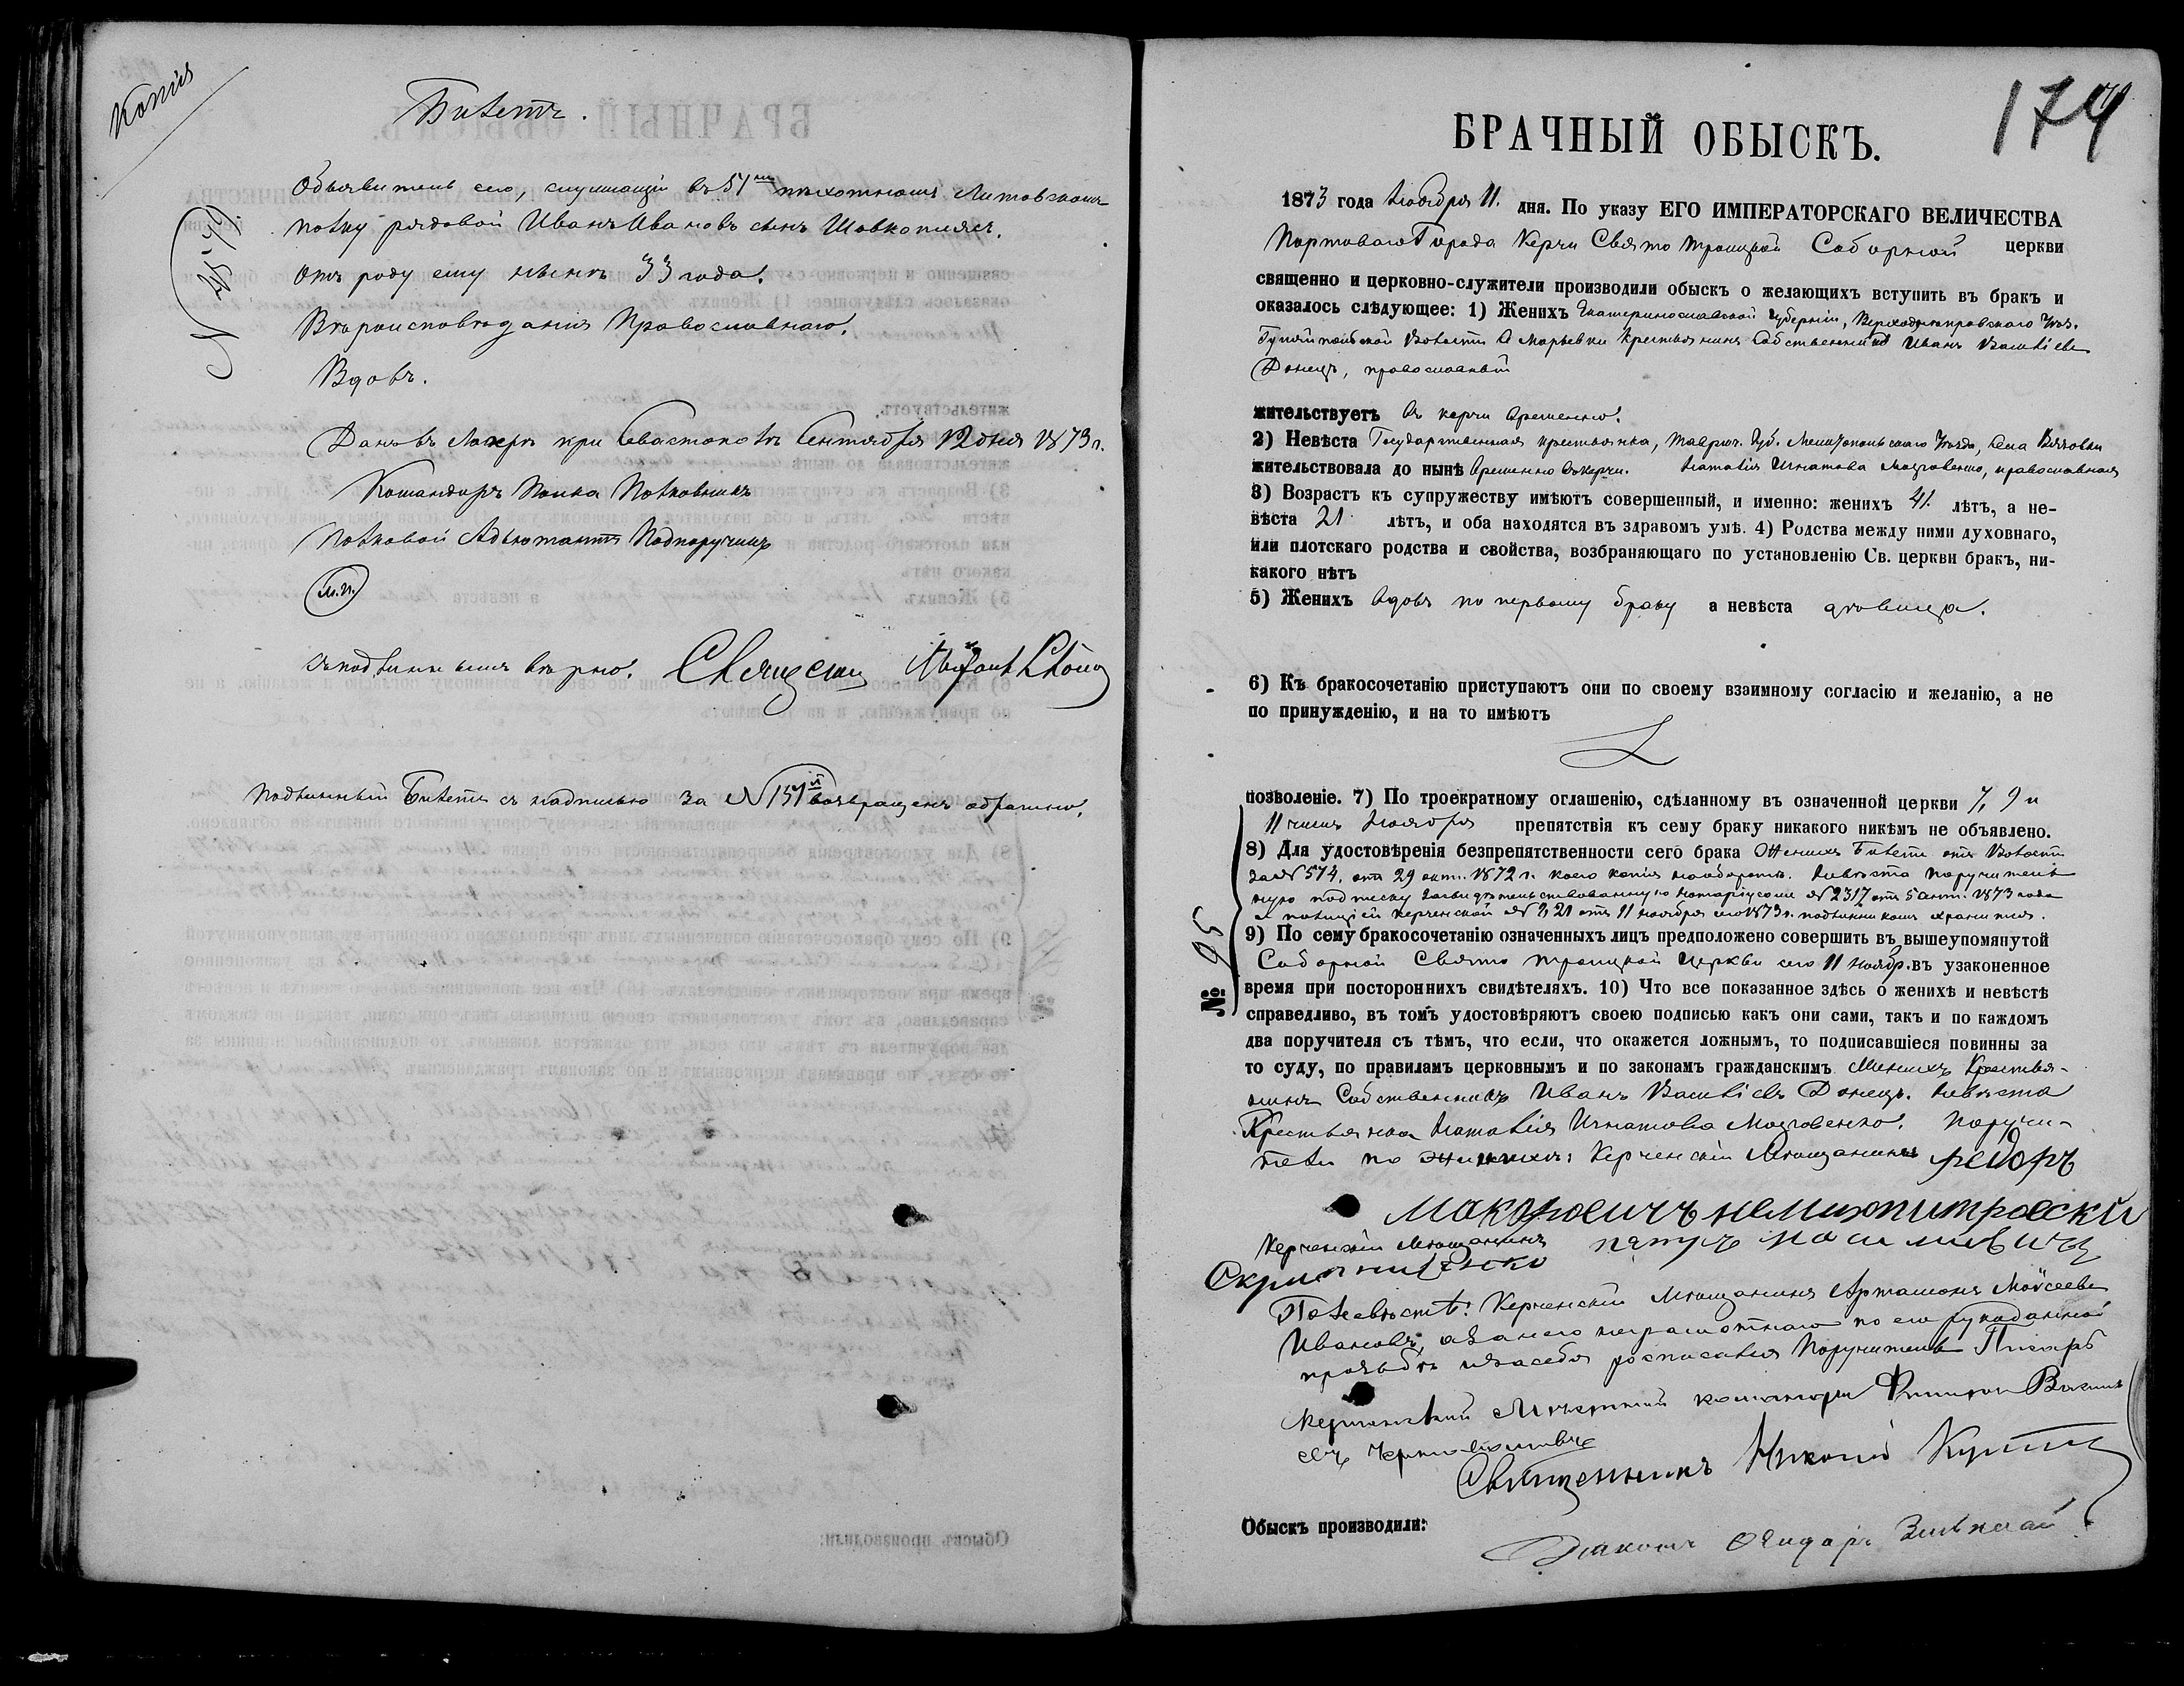 Копія
Билетъ.
N 4579
Объявитель сего, служащій въ 51мъ пѣхотномъ Литовскомъ
полку рядовой Иванъ Ивановъ сынъ Шовкоплясъ.
Отъ роду ему имѣетъ 33 года.
Вѣроисповѣданія Православнаго.
Вдовъ.
Данъ въ Лагерѣ при Севастополѣ Сентября 12 дня 1873 г.
Командиръ Полка Полковникъ
Полковой Адъютантъ Подпоручикъ
М.П.
Съ подлиннымъ вѣрно. Священ
Подлинный Билетъ съ надписью за N 151й возвращенъ обратно.
174
БРАЧНЫЙ ОБЫСКЪ.
1873 года Ноября 11. дня. По указу ЕГО ИМПЕРАТОРСКАГО ВЕЛИЧЕСТВА
Портоваго Города Керчи Свято Троицкой Соборной церкви
священно и церковно-служители производили обыскъ о желающихъ вступить въ бракъ и
оказалось слѣдующее: 1) Женихъ Екатеринославской губерніи, Верходнепровскаго Уѣз.
Волости С. Марьевки Крестьянинъ Собственникъ Иванъ Василіевъ
Донецъ, православный
жительствуетъ въ Керчи временно.
2) Невѣста Государственная крестьянка, Таврич. Губ. Мелитопольскаго Уѣзда, села Вязовки
жительствовала до нынѣ временно въ Керчи. Наталія Игнатова Мозговенко, православная
3) Возрастъ къ супружеству имѣютъ совершенный, и именно: женихъ 41. лѣтъ, а не-
вѣста 21 лѣтъ, и оба находятся въ здравомъ умѣ. 4) Родства между ними духовнаго,
или плотскаго родства и свойства, возбраняющаго по установленію Св. церкви бракъ, ни-
какого нѣтъ
5) Женихъ вдовъ по первому браку а невѣста дѣвица.
6) Къ бракосочетанію приступаютъ они по своему взаимному согласію и желанію, а не
по принужденію, и на то имѣютъ
позволеніе. 7) По троекратному оглашенію, сдѣланному въ означенной церкви 7, 9 и
11 чиселъ Ноября препятствія къ сему браку никакого никѣмъ не объявлено.
8) Для удостовѣренія безпрепятственности сего брака Женихъ Билетъ отъ Волости
за N 574. отъ 29 окт. 1872 г. коего копія на оборотѣ. Невѣста поручитель
ную подписку засвидѣтельствованную Нотаріусомъ N 2317 отъ 5 1873 года
и полиціей Керченской отъ 11 ноября сего 1873 г. подлинникомъ хранится.
№ 95
9) По сему бракосочетанію означенныхъ лицъ предположено совершить въ вышеупомянутой
Соборной Свято Троицкой церкви сего 11 ноябр. въ узаконенное
время при постороннихъ свидѣтеляхъ. 10) Что все показанное здѣсь о женихѣ и невѣстѣ
справедливо, въ томъ удостовѣряютъ своею подписью какъ они сами, такъ и по каждомъ
два поручителя съ тѣмъ, что если, что окажется ложнымъ, то подписавшіеся повинны за
то суду, по правиламъ церковнымъ и по законамъ гражданскимъ Женихъ Крестья-
нинъ Собственникъ Иванъ Василіевъ Донецъ. Невѣста
Крестьянка Наталія Игнатова Мозговенко. Поручи-
тели по женихѣ: Керченскій Мѣщанинъ
Керченскій Мѣщанинъ
По невѣстѣ: Керченскій Мѣщанинъ Артамонъ Моѵсеевъ
Ивановъ, а за него неграмотнаго по его рукоданной
прозьбѣ и за себя росписался Поручитель Писарь
Керченской Мѣстной команды
Священникъ
Обыскъ производили:
Діаконъ